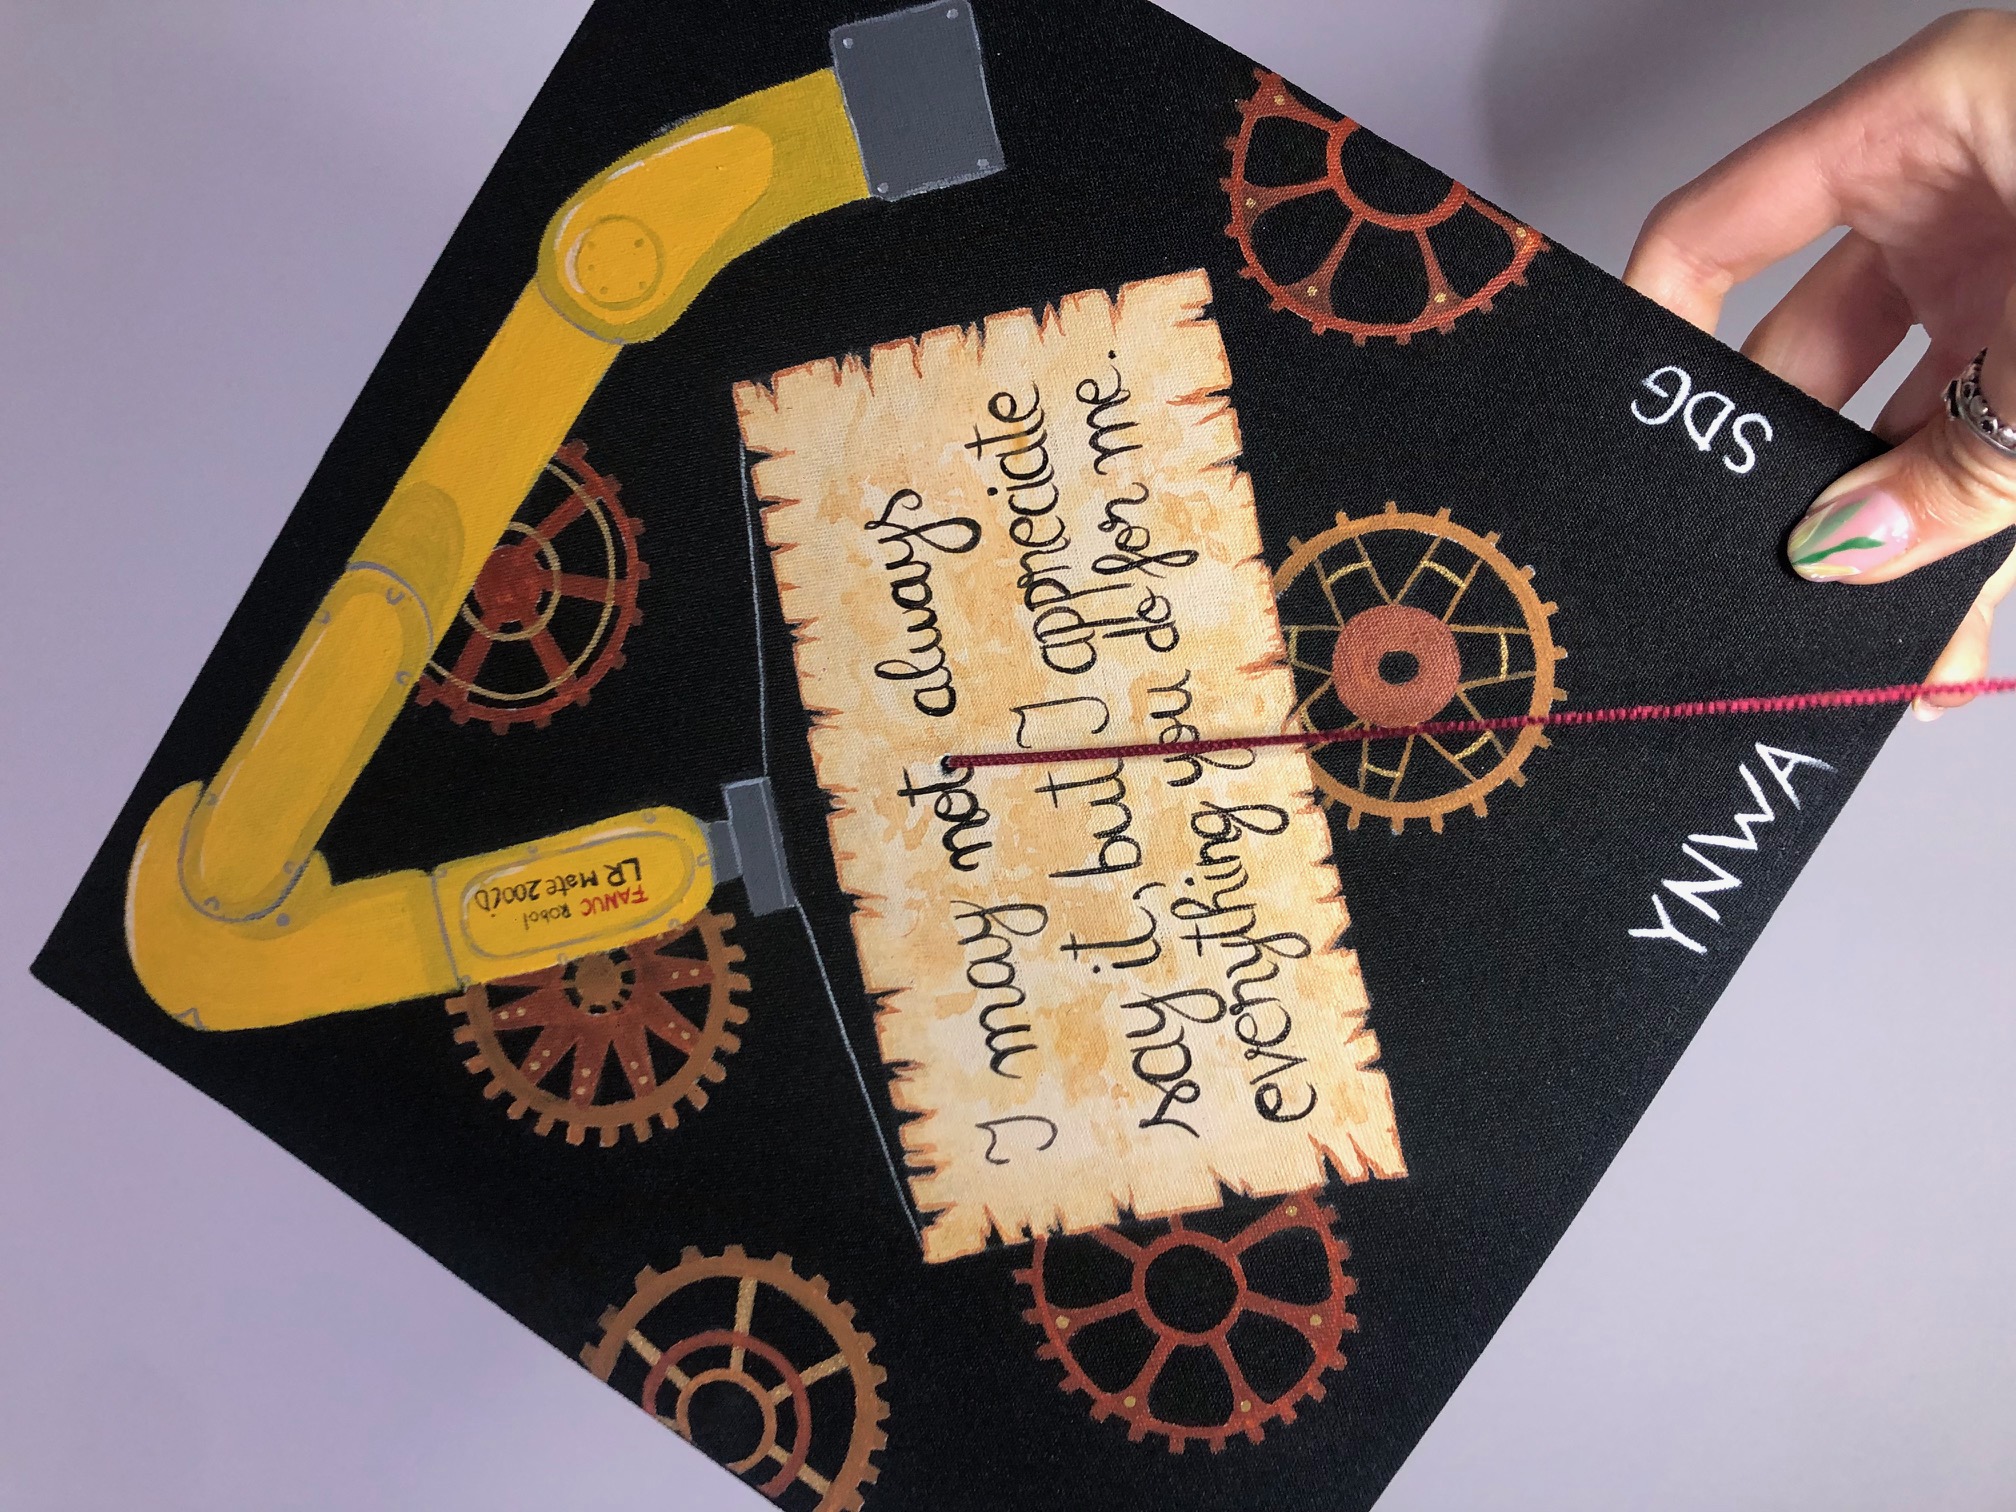 FANUC Robot
LR Mate 200iD
I may not always
say it, but I appreciate
everything you do for me.
YNWA
SDG